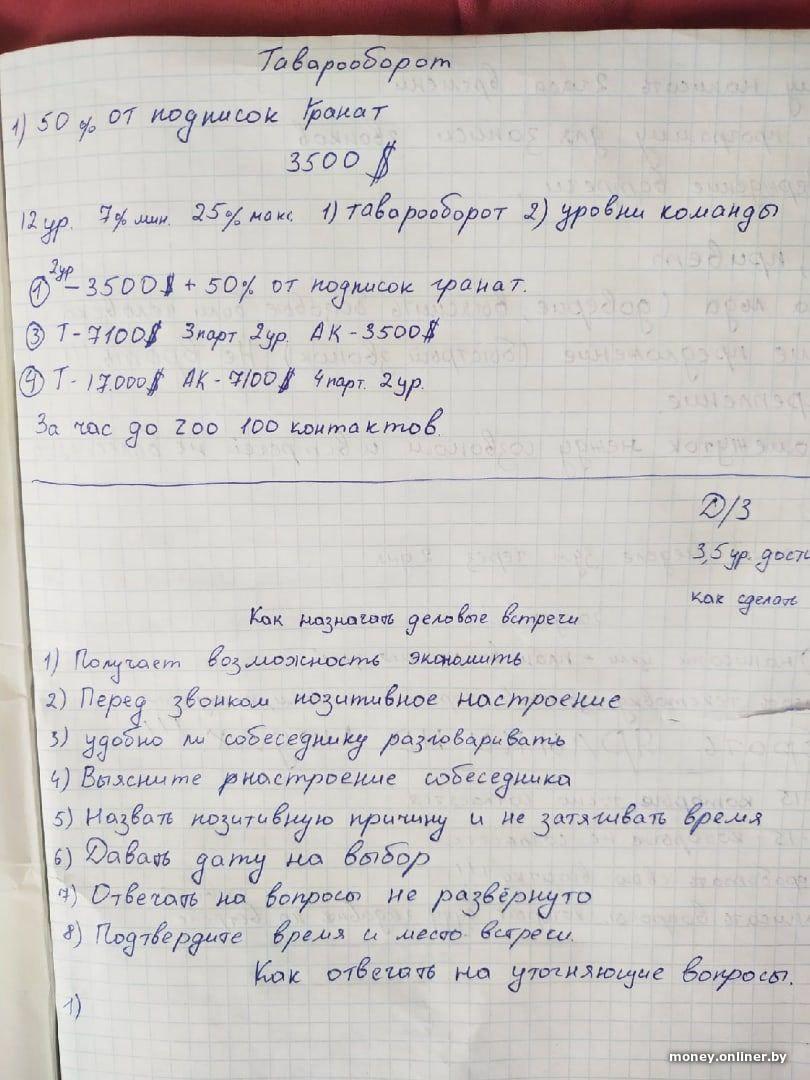 Таварооборот
1) 50 % от подписок Гранат
3500 $
12 ур. 7% мин. 25% макс. 1) таварооборот 2) уровни команды
① 2ур – 3500$ + 50% от подписок гранат.
③ Т - 7100$ 3парт 2ур. АК - 3500$
④ Т - 17.000$ АК - 7100$ 4парт. 2ур.
За час до 200 100 контактов.
Д/З
3,5 ур. дости
как сделать
Как назначать деловые встречи
1) Получает возможность экономить
2) Перед звонком позитивное настроение
3) удобно ли собеседнику разговаривать
4) Выясните рнастроение собеседника
5) Назвать позитивную причину и не затягивать время
6) Давать дату на выбор
7) Отвечать на вопросы не развёрнуто
8) Подтвердите время и место встречи.
Как отвечать на уточняющие вопросы.
1)
money.onliner.by